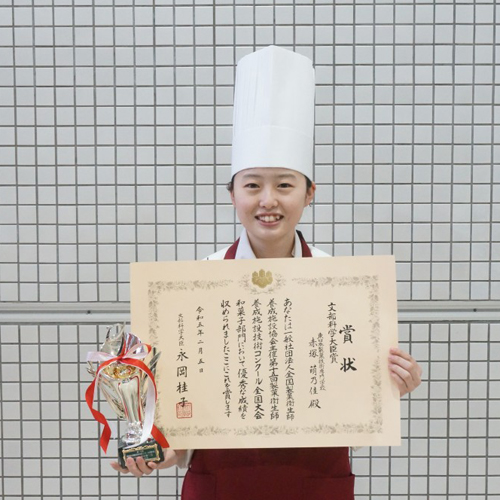 賞状
文部科学大臣賞
赤塚萌乃佳 殿
あなたは一般社団法人全国製菓衛生師
養成施設協会主催第十五回製菓衛生師
養成施設技術コンクール全国大会
和菓子部門において優秀な成績を
収められましたここにこれを賞します
令和五年二月五日
文部科学大臣 永岡桂子